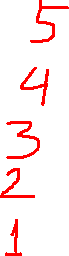 5
4
3
2
1